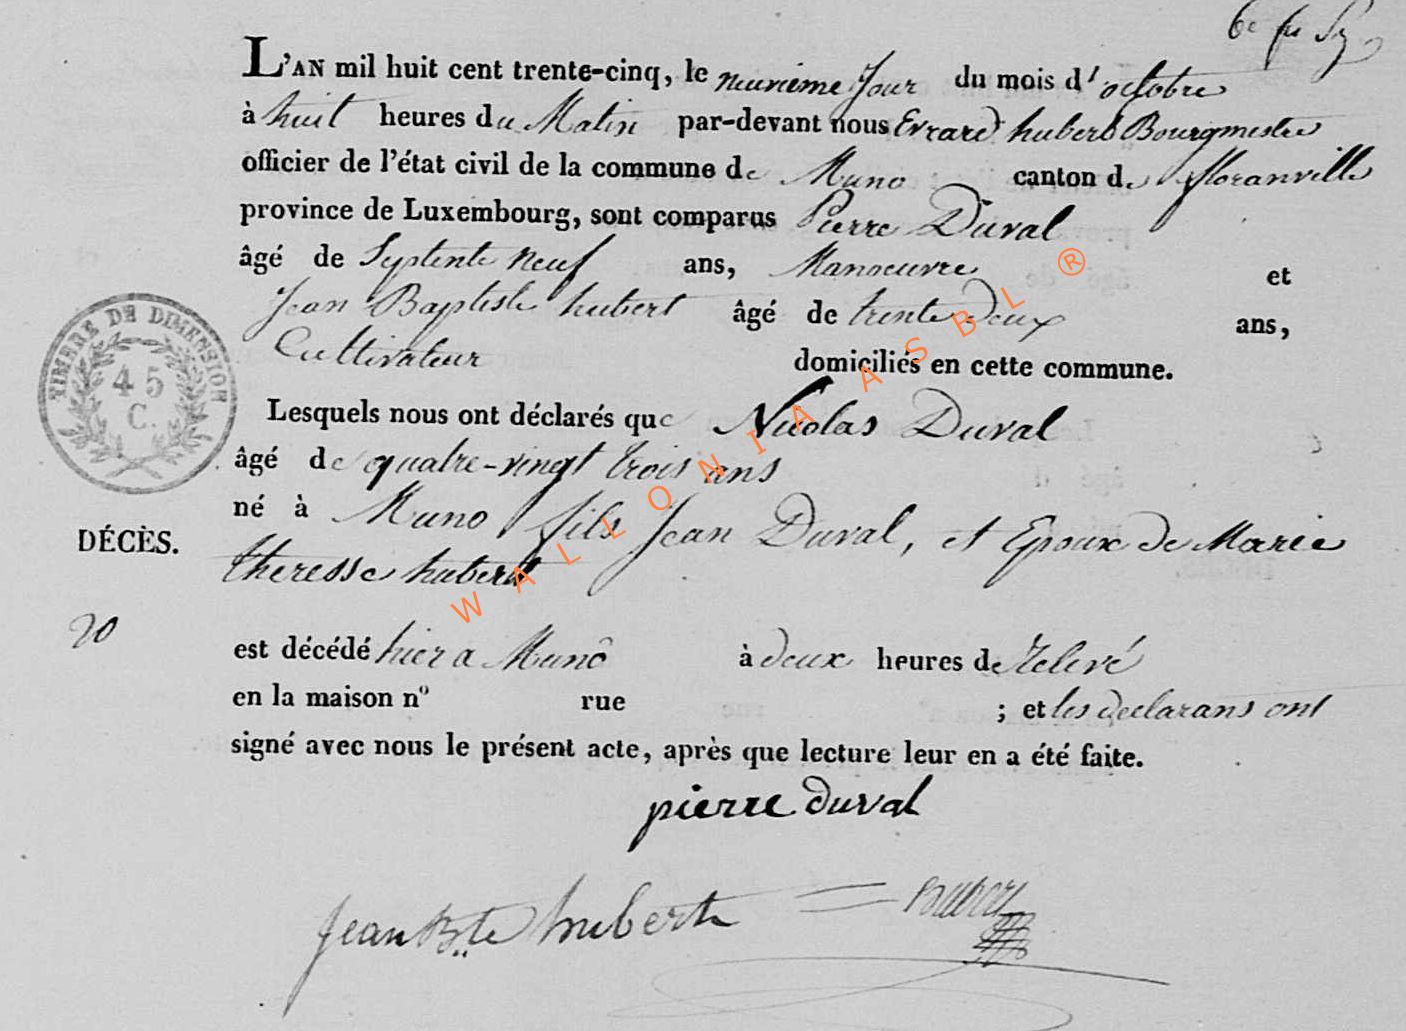 6e
L'AN mil huit cent trente-cinq, le neuvieme Jour du mois d'octobre
à huit heures du Matin par-devant nous Evrard hubert Bourgmestre
officier de l'état civil de la commune de Muno canton de floranville
province de Luxembourg, sont comparus Pierre Duval
âgé de Septente neuf ans, Manoeuvre et
Jean Baptiste hubert âgé de trente deux ans,
Cultivateur domiciliés en cette commune.
TIMBRE DE DIMENSION
45
C.
Lesquels nous ont déclarés que Nicolas Duval
âgé de quatre-vingt trois ans
né à Muno fils Jean Duval, et Epoux de Marie
DÉCÈS.
theresse hubert
20
est décédé hier a Muno à deux heures de Relevé
en la maison nº rue ; et les declarans ont
signé avec nous le présent acte, après que lecture leur en a été faite.
pierre duval
Jean Bte hubert
WALLONIA ASBL ®